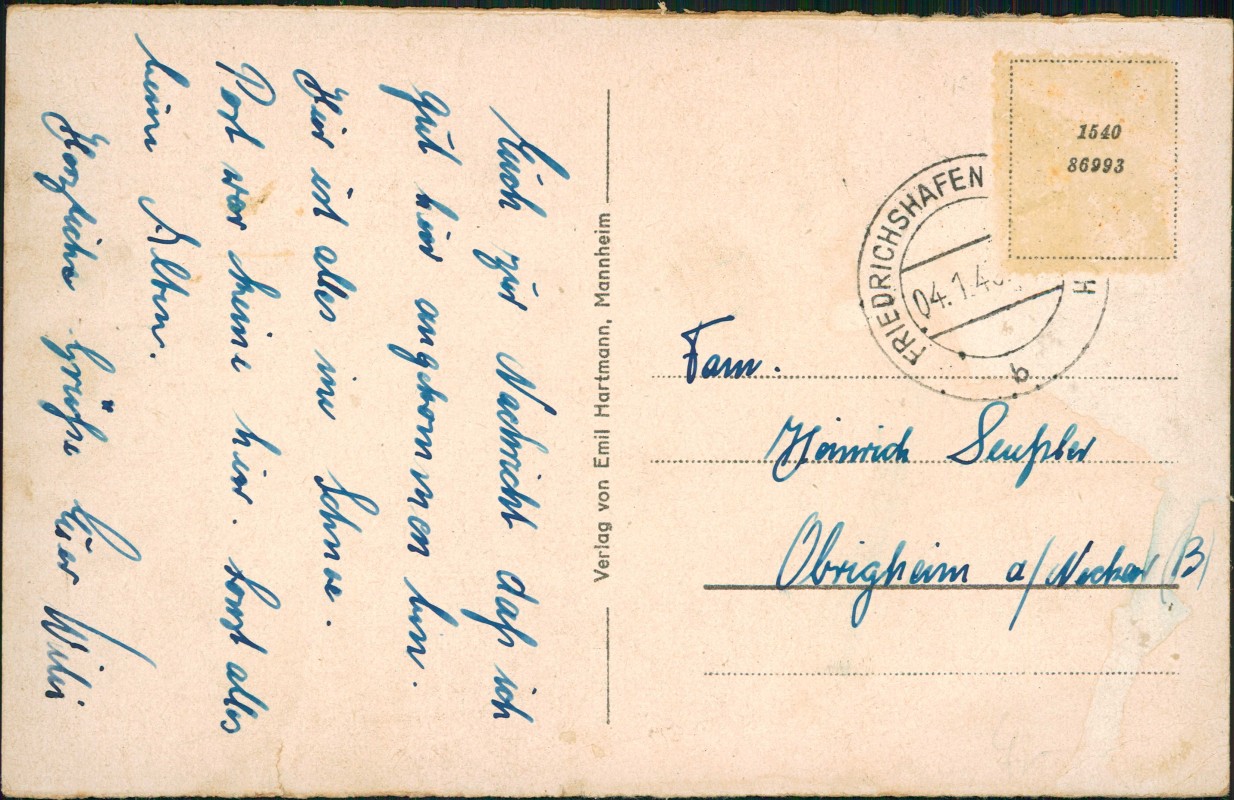 Euch zür Nachricht daß ich
gut hier angekommen bin.
Hier ist alles im Schnee.
Post war keine hier. sonst alles
beim Alten.
Herzliche Grüße Euer Willi
Verlag von Emil Hartmann, Mannheim
1540
86993
FRIEDRICHSHAFEN
04.1.4
b
Fam.
Heinrich
Obrigheim a/Neckar (B)